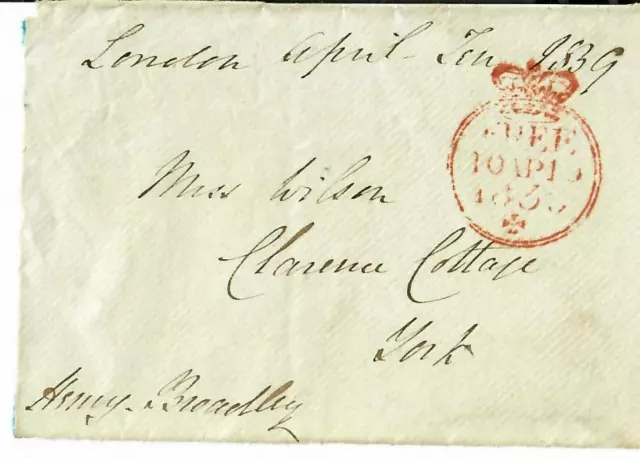 London April Ten 1839
FREE
10 AP 10
1839
Miss Wilson
Clarence Cottage
York
Henry Broadley